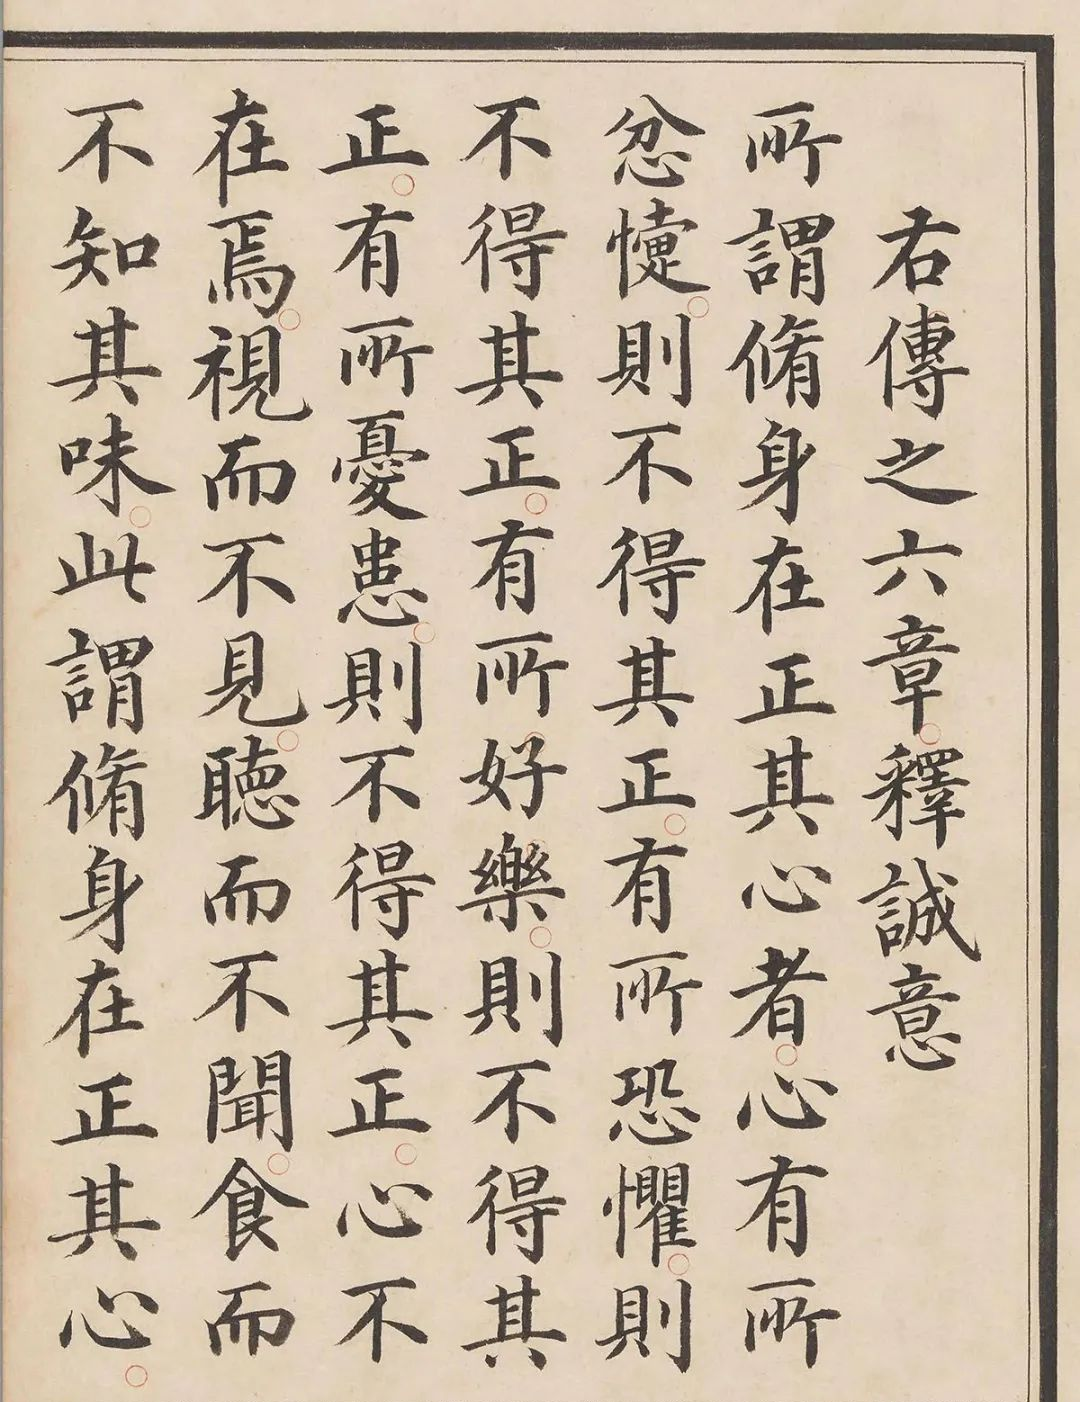 右傳之六章○釋誠意
所謂脩身在正其心者○心有所
忿懥○則不得其正○有所恐懼○則
不得其正○有所好樂○則不得其
正○有所憂患○則不得其正○心不
在焉○視而不見○聽而不聞○食而
不知其味○此謂脩身在正其心○